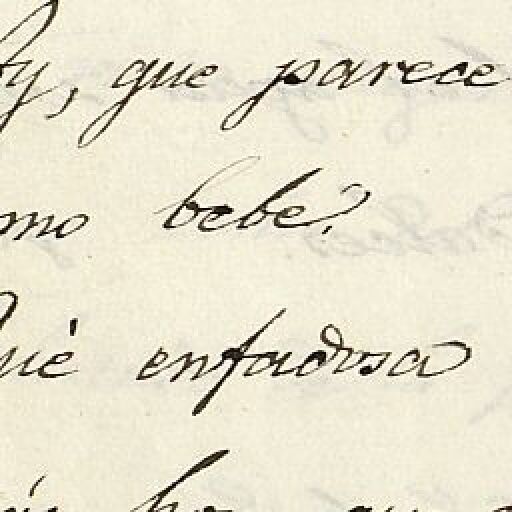 y, que parece
mo bebe?
ué enfadosa